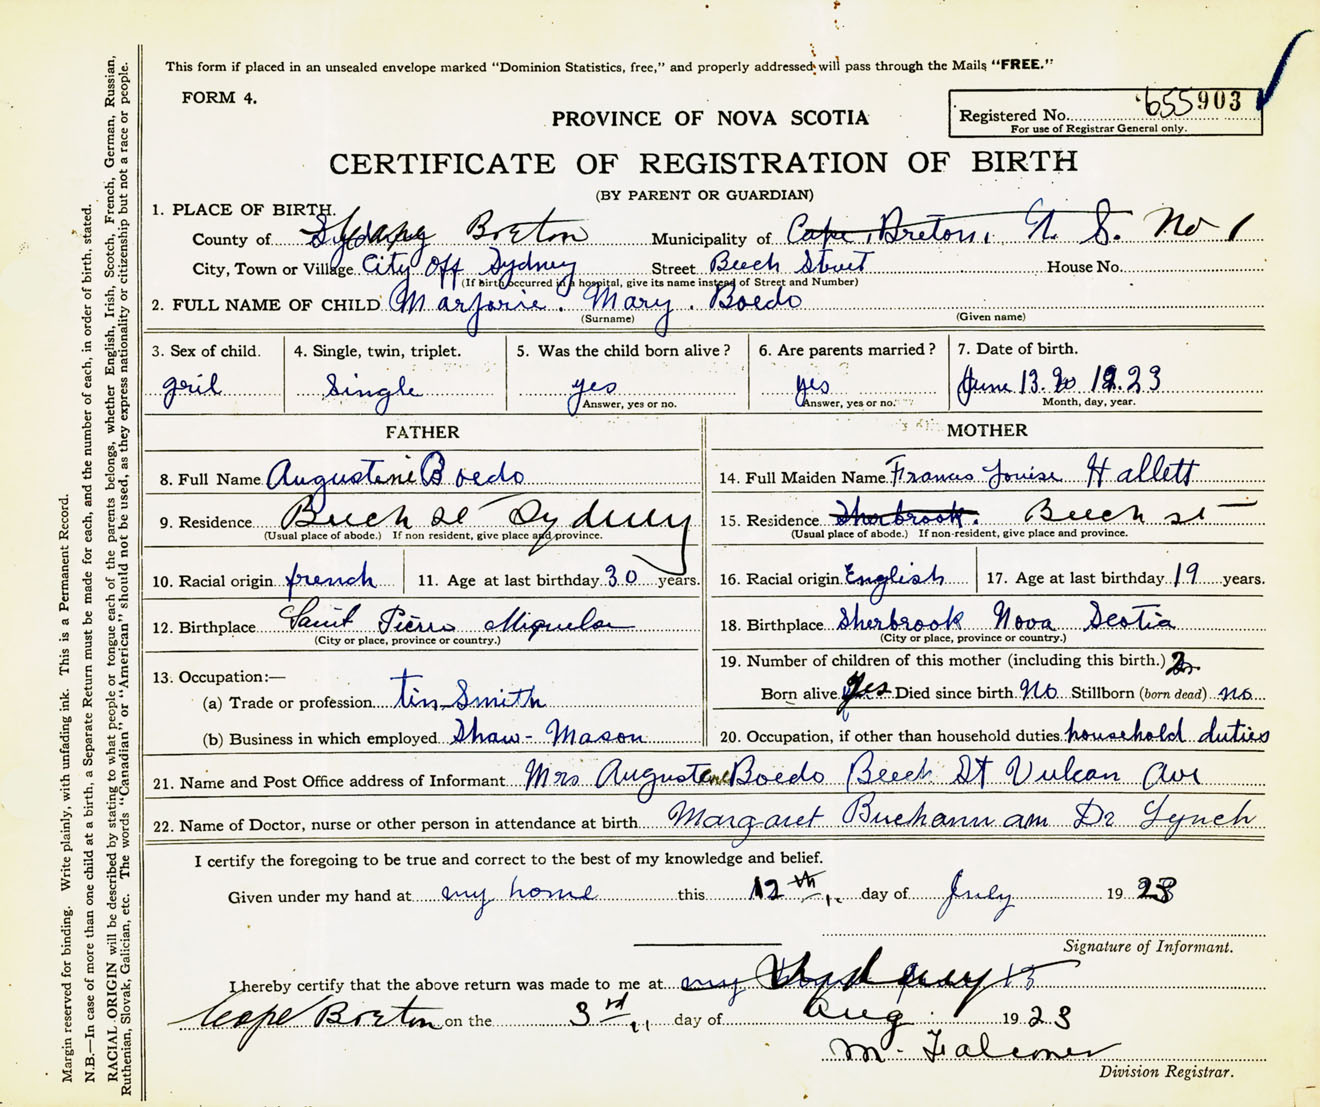 This form if placed in an unsealed envelope marked "Dominion Statistics, free," and properly addressed will pass through the Mails "FREE."
FORM 4.
Registered No. 655903
For use of Registrar General only.
PROVINCE OF NOVA SCOTIA
CERTIFICATE OF REGISTRATION OF BIRTH
(BY PARENT OR GUARDIAN)
1. PLACE OF BIRTH.
County of Breton Municipality of Cape, Breton, N. S. No 1
City, Town or Village City Off Sydney Street Beech Street House No.
(If birth occurred in a hospital, give its name instead of Street and Number)
2. FULL NAME OF CHILD Marjorie. Mary. Boedo
(Surname) (Given name)
3. Sex of child. 4. Single, twin, triplet. 5. Was the child born alive? 6. Are parents married? 7. Date of birth.
gril Single yes yes June 13. 1923
Answer, yes or no. Answer, yes or no. Month, day, year.
FATHER
8. Full Name Augustine Boedo
9. Residence Beech St Sydney
(Usual place of abode.) If non resident, give place and province.
10. Racial origin french 11. Age at last birthday 30 years.
12. Birthplace Saint Pierre Miquelon
(City or place, province or country.)
13. Occupation:—
(a) Trade or profession tin Smith
(b) Business in which employed Shaw-Mason
MOTHER
14. Full Maiden Name Frances Louise Hallett
15. Residence Sherbrook. Beech st
(Usual place of abode.) If non-resident, give place and province.
16. Racial origin English 17. Age at last birthday 19 years.
18. Birthplace Sherbrook Nova Scotia
(City or place, province or country.)
19. Number of children of this mother (including this birth.) 2
Born alive yes Died since birth no Stillborn (born dead) no
20. Occupation, if other than household duties household duties
21. Name and Post Office address of Informant Mrs Augustine Boedo Beech St Vulcan Ave
22. Name of Doctor, nurse or other person in attendance at birth Margaret Buchannam Dr Lynch
I certify the foregoing to be true and correct to the best of my knowledge and belief.
Given under my hand at my home this 12th day of July 1923
Signature of Informant.
I hereby certify that the above return was made to me at my Sydney
Cape Breton on the 3rd day of Aug. 1923
M. Falconer
Division Registrar.
Margin reserved for binding. Write plainly, with unfading ink. This is a Permanent Record.
N.B.—In case of more than one child at a birth, a Separate Return must be made for each, and the number of each, in order of birth, stated.
RACIAL ORIGIN will be described by stating to what people or tongue each of the parents belongs, whether English, Irish, Scotch, French, German, Russian,
Ruthenian, Slovak, Galician, etc. The words "Canadian" or "American" should not be used, as they express nationality or citizenship but not a race or people.